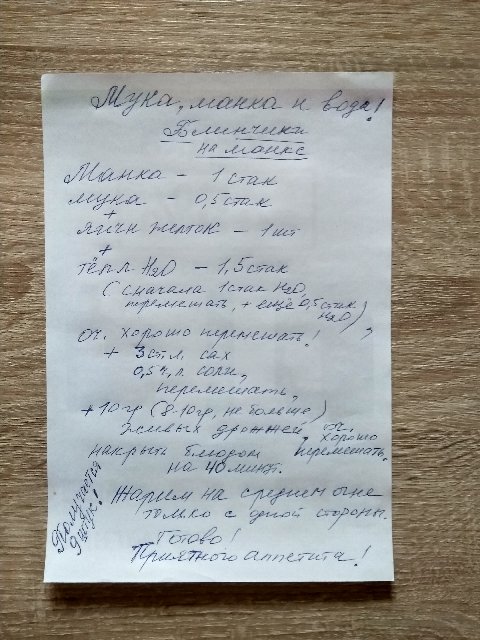 Мука, манка и вода!
Блинчики
на манке
Манка – 1 стак
мука – 0,5 стак
+
яичн желток – 1 шт
+
тёпл H2O – 1,5 стак
(сначала 1 стак H2O,
перемешать, + ещё 0,5 стак
H2O),
оч. хорошо перемешать!
+ 3 ст.л. сах
0,5 ч.л. соли,
перемешать,
+ 10 гр (8-10 гр, не больше)
живых дрожжей, оч.
хорошо
перемешать.
накрыть блюдом
на 40 минут.
Жарим на среднем огне
только с одной стороны.
Готово!
Приятного аппетита!
Получается
9 штук!